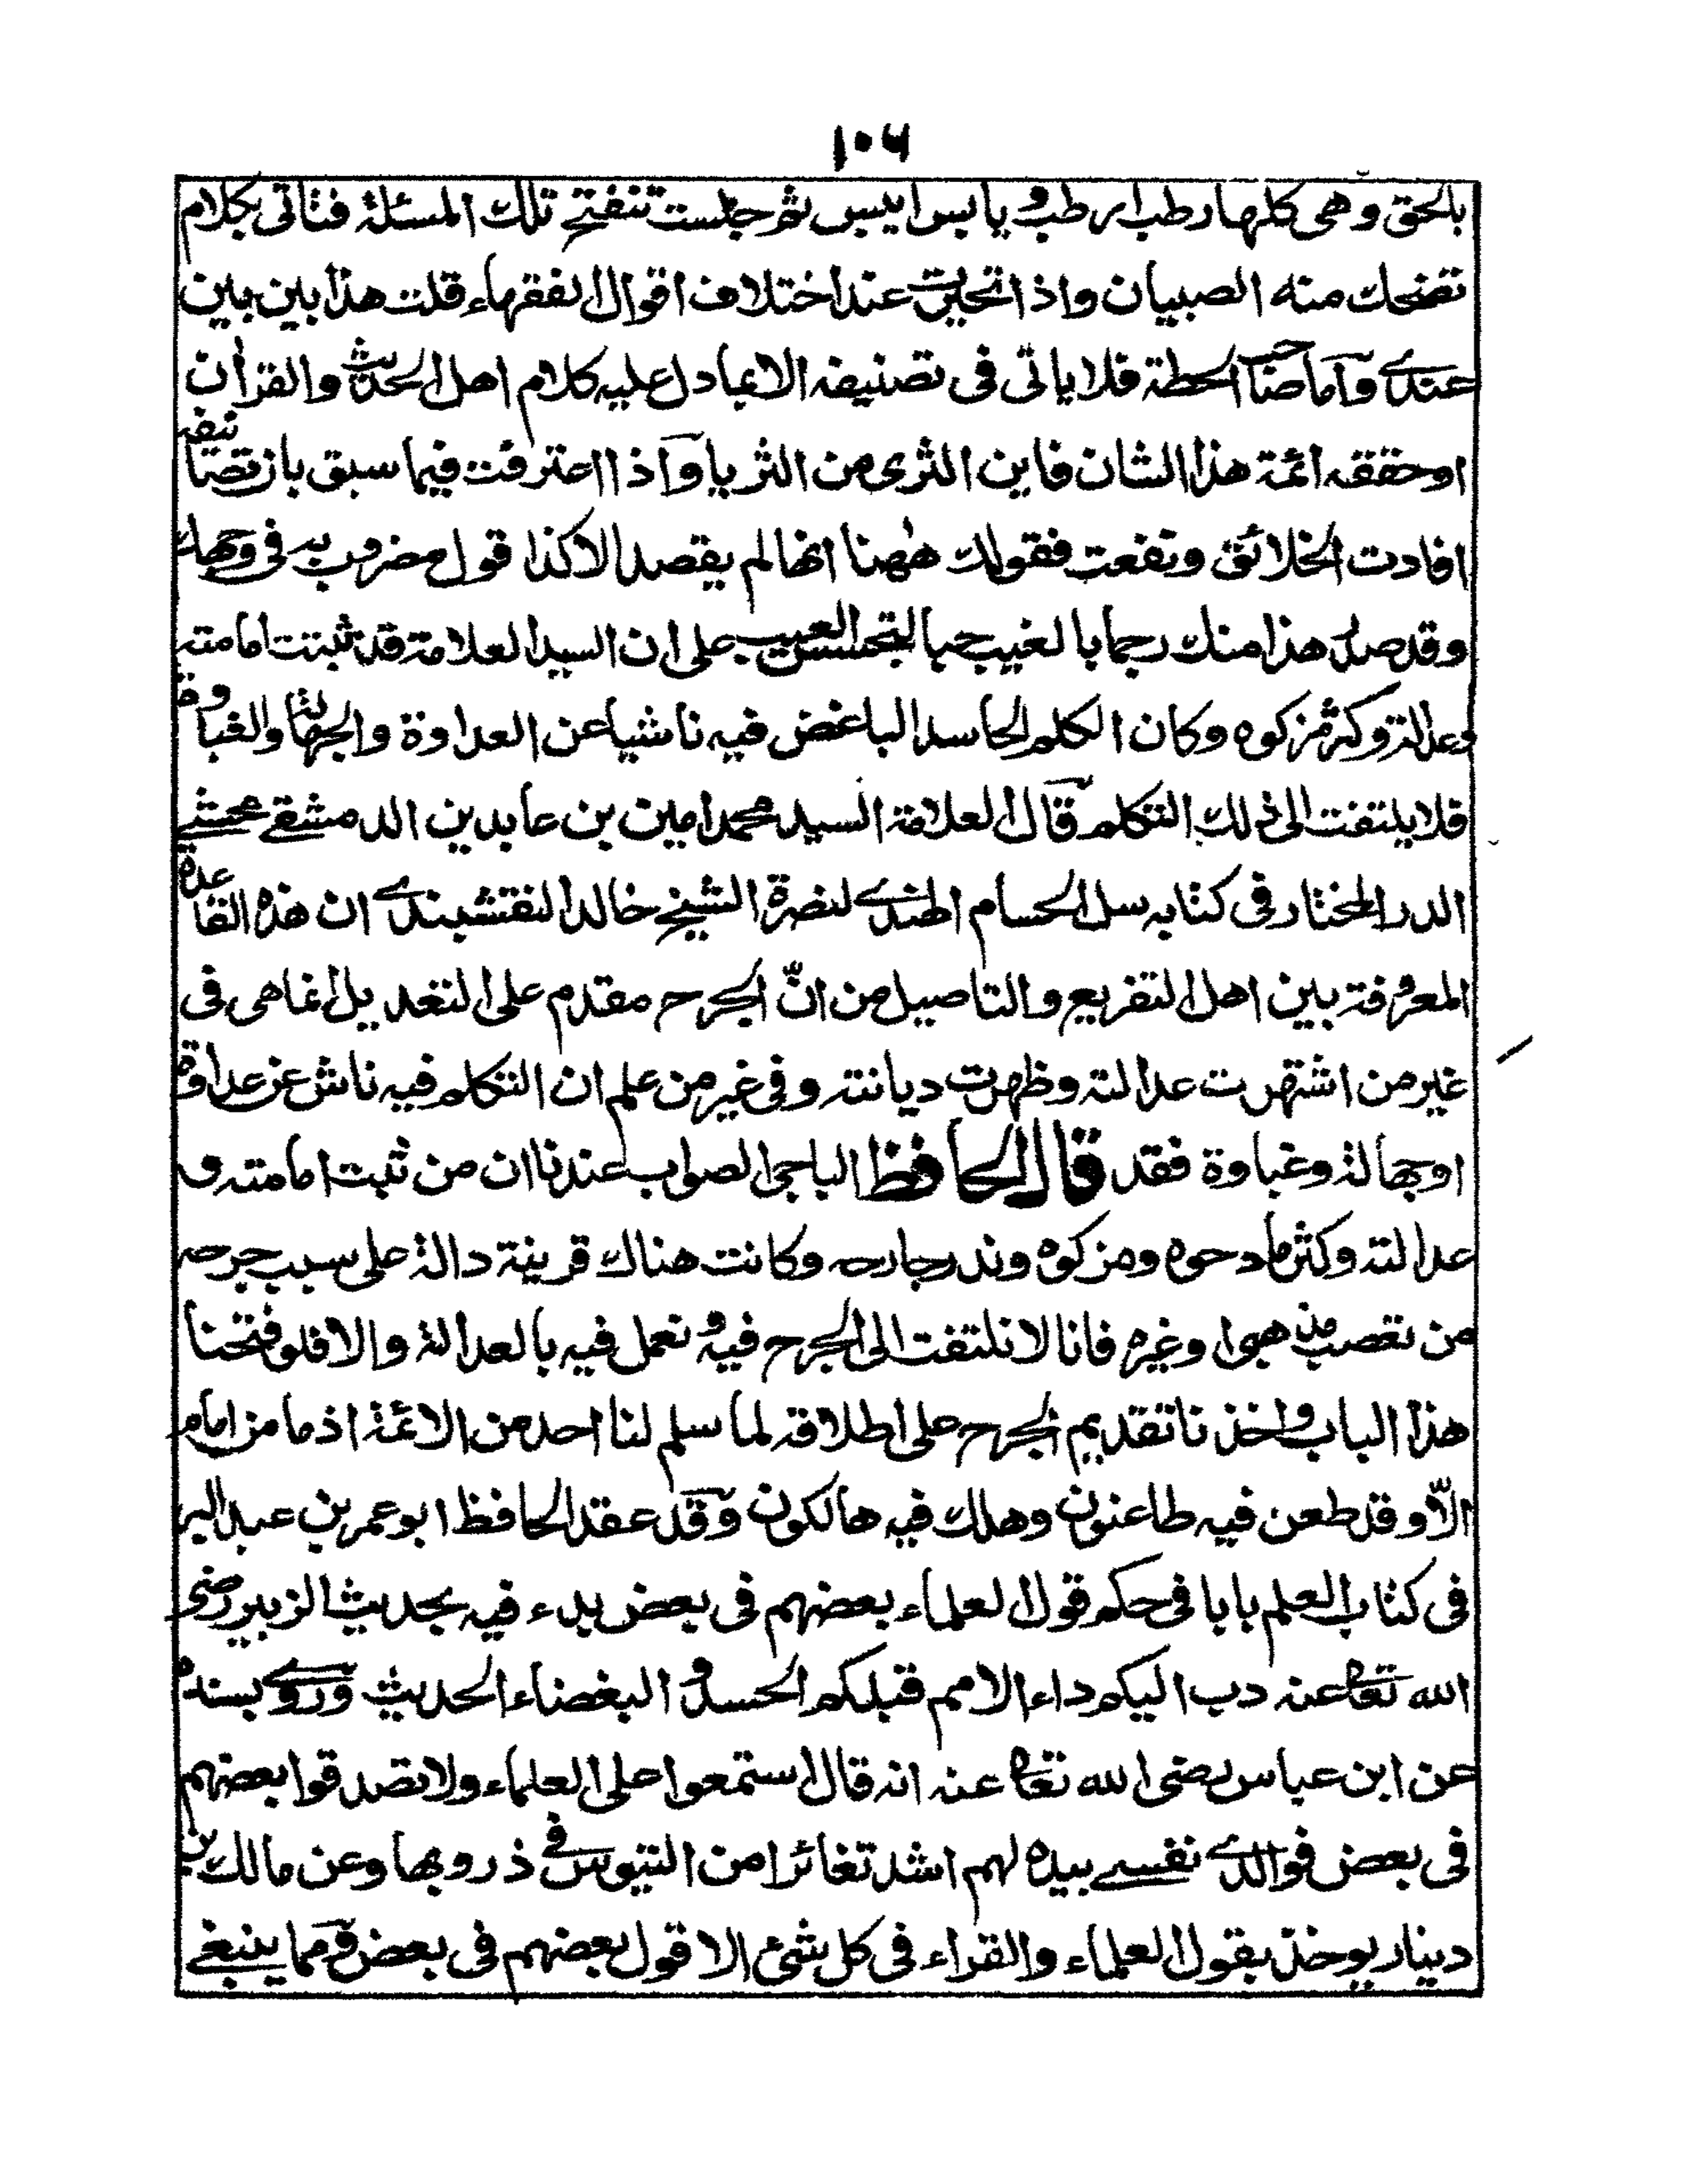 ١٠٦
بالحق وهى كلها رطب ارطب و يابس ايبس ثم جلست تنفتح تلك المسئلة فتاتى بكلام
تضحك منه الصبيان واذا تحيرت عند اختلاف اقوال الفقهاء قلت هذا بين بين
عندى وآما صاحب الحطة فلا ياتى فى تصنيفه الا بما دل عليه كلام اهل الحديث والقرآن
او حققه ائمة هذا الشان فاين الثرى من الثريا وآذا اعترفت فيما سبق بان تصانيفه
افادت الخلائق ونفعت فقولك ههنا انها لم يقصد الا كذا قول مضروب به فى وجهك
وقد صدر هذا منك رجما بالغيب حبا لتجسس العيب على ان السيد العلامة قد ثبتت امامته
وعدالته وكثر مزكوه وكان الكلم الحاسد الباغض فيه ناشيا عن العداوة والجهالة والغباوة
فلا يلتفت الى ذلك التكلم قآل العلامة السيد محمد امين بن عابدين الدمشقے محشے
الدر المختار فى كتابه سل الحسام الهندے لنصرة الشيخ خالد النقشبندے ان هذه القاعدة
المعروفة بين اهل التفريع والتاصيل من انّ الجرح مقدم على التعديل انما هى فى
غير من اشتهرت عدالته وظهرت ديانته وفى غير من علم ان التكلم فيه ناش عن عداوة
او جهالة وغباوة فقد قال الحافظ الباجى الصواب عندنا ان من ثبت امامته و
عدالته وكثر مادحوه ومزكوه وندر جارحه وكانت هناك قرينة دالة على سبب جرحه
من تعصب مذهبى او غيره فانا لا نلتفت الى الجرح فيه و نعمل فيه بالعدالة والا فلو فتحنا
هذا الباب واخذنا تقديم الجرح على اطلاقه لما سلم لنا احد من الائمة اذ ما من امام
الّا وقد طعن فيه طاعنون وهلك فيه هالكون وقد عقد الحافظ ابو عمر بن عبد البر
فى كتاب العلم بابا فى حكم قول العلماء بعضهم فى بعض بدء فيه بحديث الزبير رضى
الله تعالى عنه دب اليكم داء الامم قبلكم الحسد و البغضاء الحديث وروے بسنده
عن ابن عباس رضى الله تعالى عنه انه قال استمعوا على العلماء ولا تصدقوا بعضهم
فى بعض فوالذے نفسے بيده لهم اشد تغائرا من التيوس فے ذروبها وعن مالك بن
دينار يوخذ بقول العلماء والقراء فى كل شئ الا قول بعضهم فى بعض ومما ينبغے